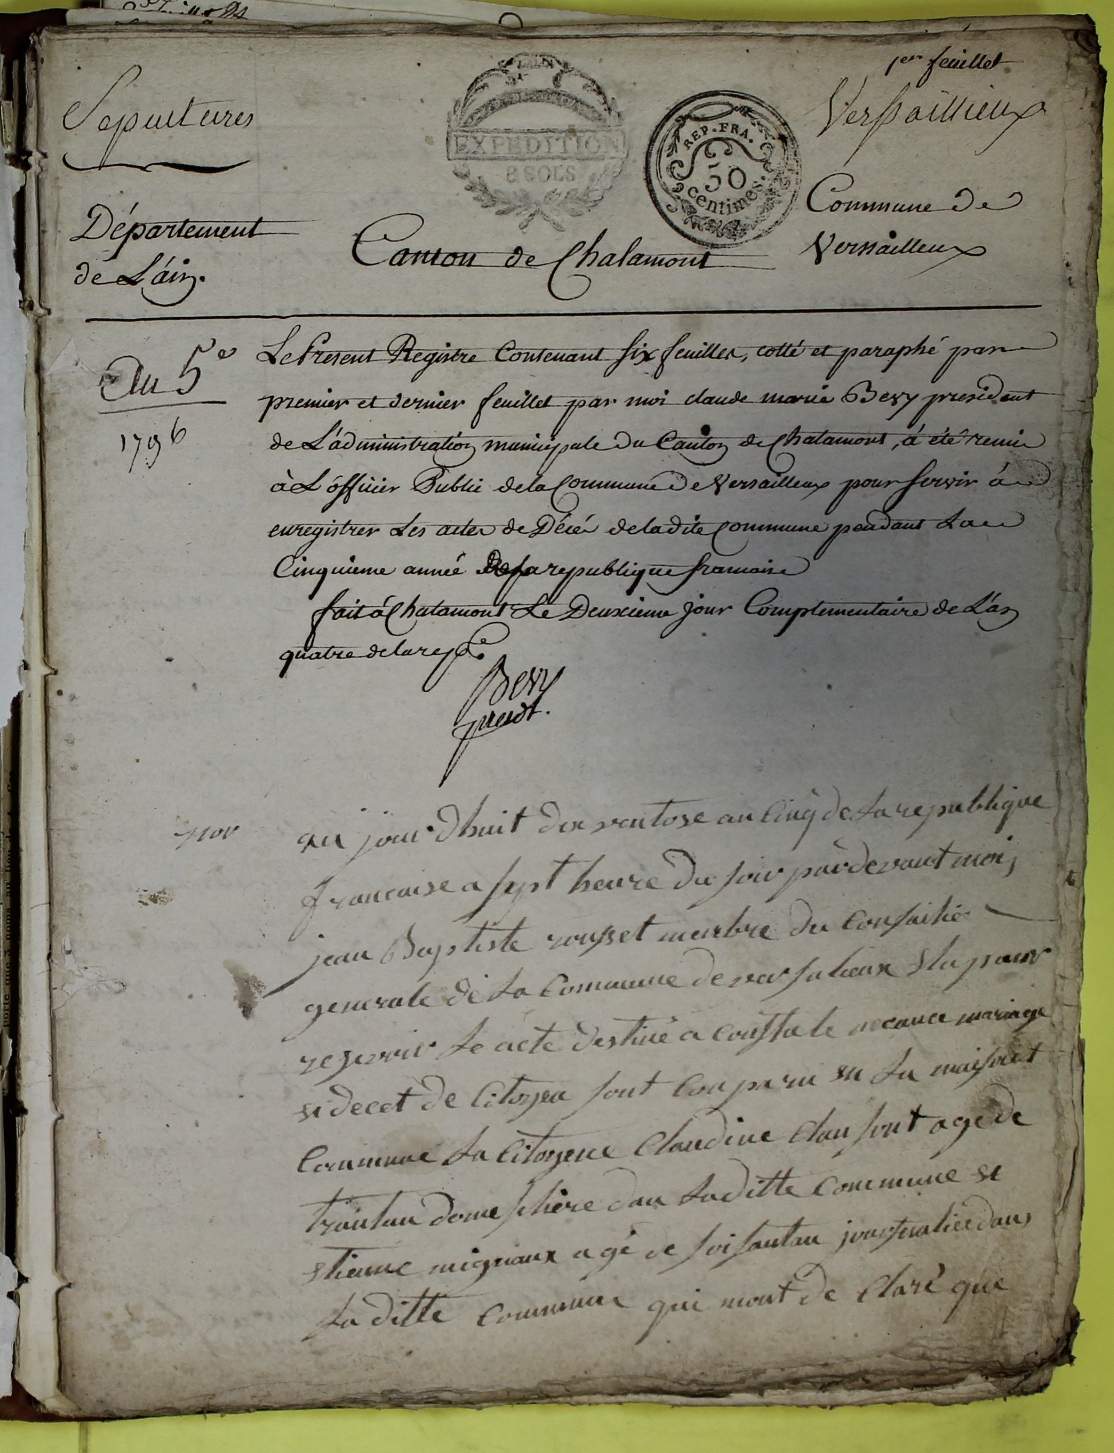 1er feuillet
Sepultures
EXPEDITION
8 SOLS
REP. FRA.
50
centimes.
Versaillieux
Département
de L'áin.
Canton de Chalamont
Commune de
Versailleux
An 5e
1796
Le Present Registre Contenant six feuilles, cotté et paraphé par
premier et dernier feuillet par moi claude marie Bevy president
de L'administration municipale du Canton de Chalamont, á été remis
à L'officier Public de la Commune de Versailleux pour servir á
enregistrer Les actes de Décés de ladite Commune pendant La
Cinquieme année De la republique francaise
fait á Chalamont Le Deuxieme jour Complementaire de L'an
quatre de la rep.e
Bevy
presdt.
au jour dhuit dix ventose an Cinq de La republique
francaise a sept heure du soir par devant moi,
jean Baptiste rousset membre du Consailie
generale de La Commune de versalieux Elu pour
resevoir Le acte destiné a constate mariage
si decet de Citoyen sont Conparu en La maison
Commune La Citoyene Claudine age de
trantan dans Laditte Commune et
etienne migniaux agé de soisantan journalier dans
La ditte Commune qui mont de Claré que